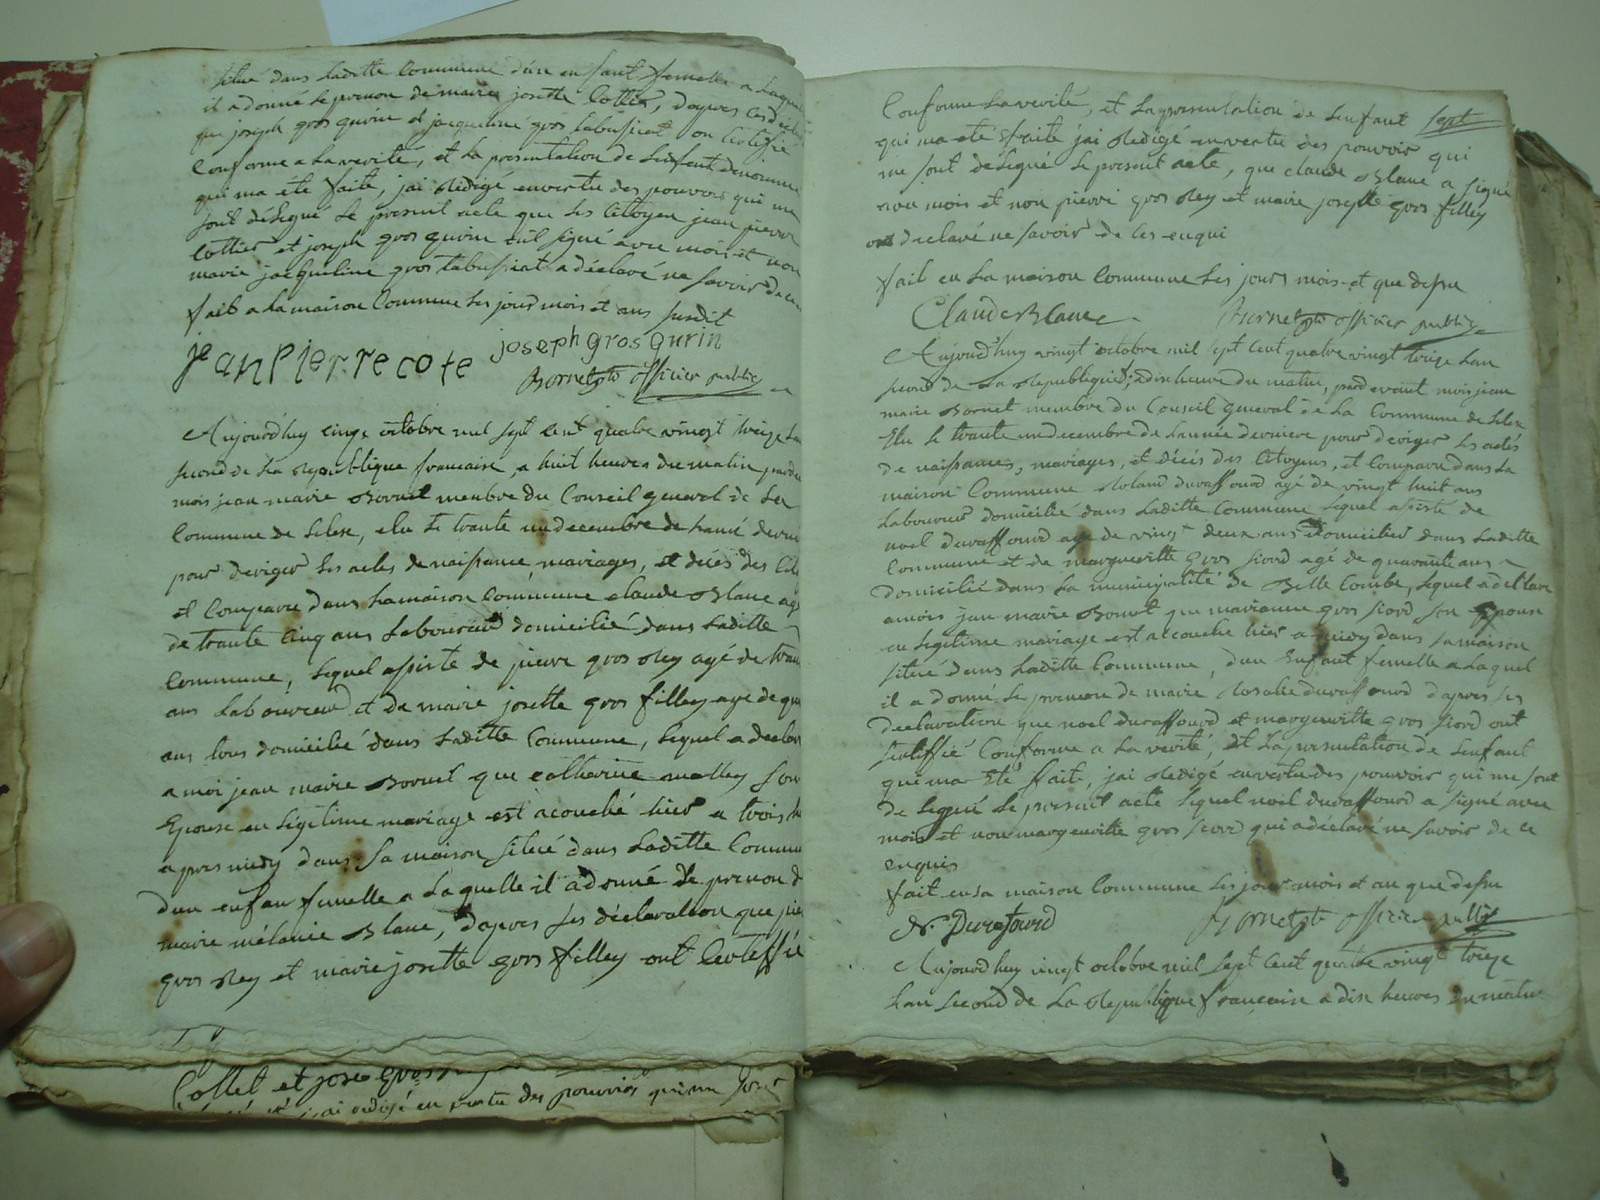 situé dans Laditte Commune d'un enfant femelle a Laquel
il a donné le prenon de marie josette Cottier, dapres Les décla
que joseph gros gurin et jacqueline gros labussiat on Certifié
Conforme a La verité, et La presentation de Lenfent denommé
qui ma eté faite, jai Redigé envertu des pouvoirs qui me
sont délegué Le present acte que Les Citoyen jean pierre
Cottier et joseph gros gurin ont signé avec mois et non
marie jacqueline gros labussiat a déclavé ne savoir de ce
fait a La maison Commune Les jour mois et ans susdit
jeanpierre cote joseph gros gurin
Bornet officier public
Aujourdhuy cinqe octobre mil sept cent quatre vingt treize Lan
second de La Republique francaise, a huit heures du matin pardev
mois jean marie Bornet membre du Conseil general de La
Commune de , elu Le trante un decembre de Lanné derni
pour deriger Les actes de naissance, mariages, et décés des Cito
et Comparu dans La maison Commune claude Blanc agé
de trante Cinq ans Laboureur domicilié dans Laditte
Commune, Lequel assisté de pierre gros Rey agé de tran
ans Laboureur et de marie josette gros filley age de qua
ans tous domicilié dans Laditte Commune, Lequel a declaré
a moi jean marie Bornet que catherine molley son
Epouse en Legitime mariage est acouché hier a trois h
apres midy dans Sa maison situé dans Laditte Commun
dun enfan femelle a Laquelle il a donné Le prenon de
marie mélanie Blanc, dapres Les déclaration que pier
gros Rey et marie josette gros filley ont Certiffié
Collet et jose gros
jai redigé en vertu des pouvoirs qui me sont
Conforme La verité, et La presentation de Lenfant sept
qui ma eté faite jai Redigé envertu des pouvoir qui
me sont délegué Le present acte, que claude Blanc a signé
avec mois et non pierre gros Rey et marie josette gros filley
ont declavé ne savoir de Ces enqui
fait en La maison Commune Les jours mois et que dessu
Claude Blanc Bornet officier public
Aujourdhuy vingt octobre mil sept Cent quatre vingt treize Lan
second de La Republique, a dix heure du matin, pardevant mois jean
marie Bornet membre du Conseil general de La Commune de
Elu Le trante un decembre de Lannée derniere pour deriger Les actes
de naissances, mariages, et décés des Citoyens, et Comparu dans La
maison Commune Roland duraffourd agé de vingt huit ans
Laboureur domicilié dans Laditte Commune Lequel assisté de
noel duraffourd age de vingt deux ans domicilier dans Laditte
Commune et de margueritte gros fiord agé de quarante ans
domicilié dans La municipalité de Belle Combe, Lequel a declaré
a mois jean marie Bornet que marianne gros fiord son Epouse
en Legitime mariage est accouché hier a midy dans sa maison
situé dans Laditte Commune, dun Enfant femelle a Laquel
il a donné Le prenom de marie Rosalie duraffourd dapres Les
declaration que noel duraffourd et marguerite gros fiord ont
sertiffié Conforme a La verité, et La presentation de Lenfant
qui ma Eté faite, jai Redigé envertu des pouvoir qui me sont
de Legué Le present acte Lequel noel duraffourd a signé avec
mois et non marguerite gros fiord qui a déclavé ne savoir de ce
enquis
fait en sa maison Commune Les jour mois et an que dessu
N. Durafourd Bornet officier public
Aujourdhuy vingt octobre mil sept Cent quatre vingt treize
Lan second de La Republique francaise a dix heures du matin